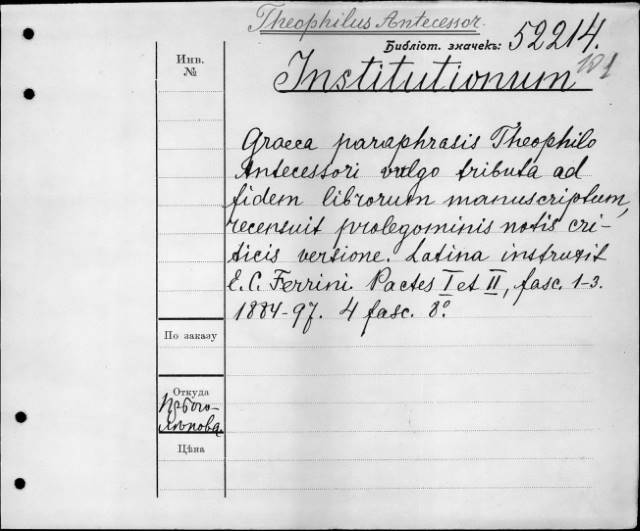 Theophilus Antecessor.
Библіот. значекъ: 52214.
Инв.
№
Institutionum
Graeca paraphrasis Theophilo
Antecessori vulgo tributa ad
fidem librorum manuscriptum,
recensuit prolegominis notis cri-
ticis versione. Latina instruxit
E. C. Ferrini Pactes I et II, fasc. 1-3.
1884-97. 4 fasc. 8º.
По заказу
Откуда
Цѣна